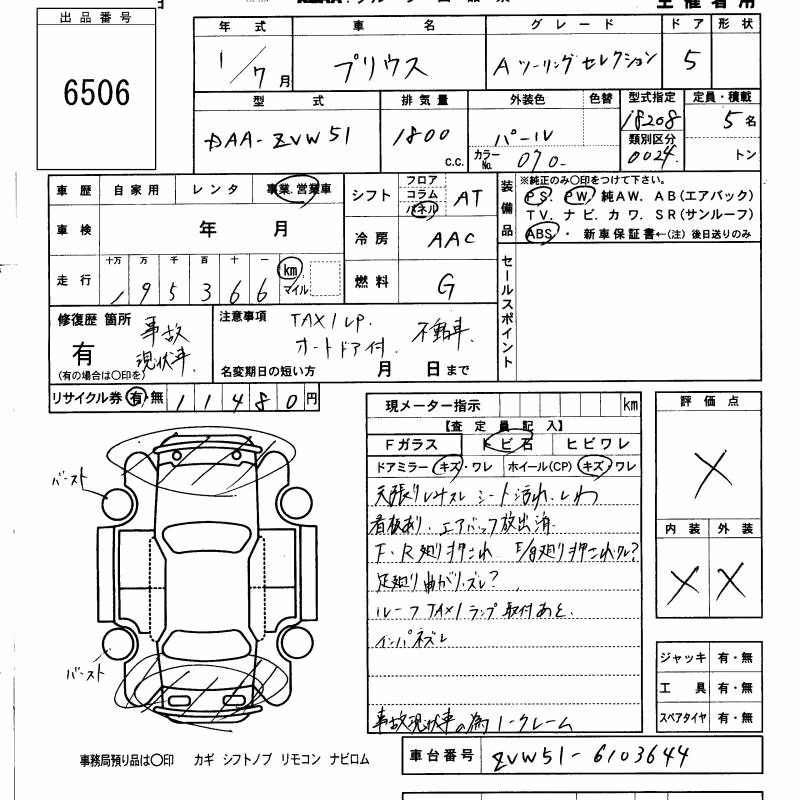 出品番号
6506
年式 車名 グレード ドア 形状
1/7月 プリウス Aツーリングセレクション 5
型式 排気量 外装色 色替 型式指定 定員・積載
DAA-ZVW51 1800 c.c. パール 18208 5名
カラーNo. 070 類別区分 0024 トン
車歴 自家用 レンタ 事業.営業車
シフト フロア コラム パネル AT
装備品 ※純正のみ〇印をつけて下さい。
PS. PW. 純AW. AB(エアバック)
TV. ナビ. カワ. SR(サンルーフ)
ABS・ 新車保証書←(注) 後日送りのみ
車検 年 月
冷房 AAC
走行 十万 万 千 百 十 一 km マイル
195366
燃料 G
セールスポイント
修復歴 箇所 事故現状車
有
(有の場合は〇印を)
注意事項 TAXI UP. 不動車.
オートドア付.
名変期日の短い方 月 日まで
リサイクル券 有・無 11480円
現メーター指示 km
【査定員記入】
Fガラス トビ石 ヒビワレ
ドアミラー キズ・ワレ ホイール(CP) キズ・ワレ
天張りシミスレ シート汚れ.シワ
看板あり. エアバック放出済.
F・R廻りキズこわれ
足廻り曲がり.ズレ?
ルーフ TAXIランプ取付あと.
インパネズレ
事故現状車の為ノークレーム
評価点
×
内装 外装
× ×
バースト
バースト
ジャッキ 有・無
工具 有・無
スペアタイヤ 有・無
事務局預り品は〇印 カギ シフトノブ リモコン ナビロム
車台番号 ZVW51-6103644